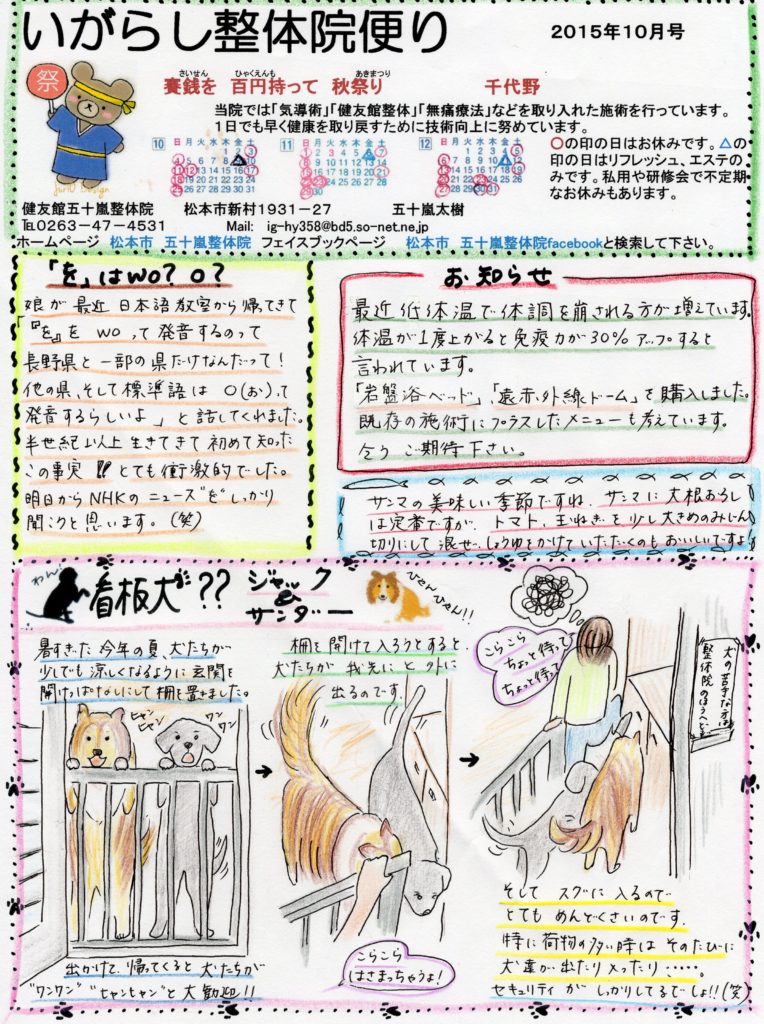 いがらし整体院便り
2015年10月号
祭
賽銭を 百円持って 秋祭り 千代野
さいせん ひゃくえんも あきまつり
当院では「気導術」「健友館整体」「無痛療法」などを取り入れた施術を行っています。
1日でも早く健康を取り戻すために技術向上に努めています。
10 日 月 火 水 木 金 土
11 日 月 火 水 木 金 土
12 日 月 火 水 木 金 土
〇の印の日はお休みです。△の
印の日はリフレッシュ、エステの
みです。私用や研修会で不定期
なお休みもあります。
健友館五十嵐整体院 松本市新村1931-27 五十嵐太樹
℡0263-47-4531 Mail: ig-hy358@bd5.so-net.ne.jp
ホームページ 松本市 五十嵐整体院 フェイスブックページ 松本市 五十嵐整体院facebookと検索して下さい。
「を」はwo? o?
娘が最近日本語教室から帰ってきて
「『を』を wo って発音するのって
長野県と一部の県だけなんだって!
他の県、そして標準語は o(お)って
発音するらしいよ」と話してくれました。
半世紀以上生きてきて初めて知った
この事実!! とても衝激的でした。
明日からNHKのニュース"を"しっかり
聞こうと思います。(笑)
お知らせ
最近低体温で体調を崩される方が増えています。
体温が1度上がると免疫力が30%アップすると
言われています。
「岩盤浴ベッド」「遠赤外線ドーム」を購入しました。
既存の施術にプラスしたメニューも考えています。
乞うご期待下さい。
サンマの美味しい季節ですね。サンマに大根おろし
は定番ですが、トマト、玉ねぎを少し大きめのみじん
切りにして混ぜ、しょうゆをかけていただくのもおいしいですよ
わん!
看板犬が??
ジャック
&
サンダー
ひゃんひゃん!!
暑すぎた今年の夏、犬たちが
少しでも涼しくなるように玄関を
開けっぱなしにして柵を置きました。
ヒャン
ヒャン
ワン
ワン
出かけて、帰ってくると犬たちが
"ワンワン""ヒャンヒャン"と大歓迎!!
柵を開けて入ろうとすると、
犬たちが我先にと外に
出るのです。
こらこら
はさまっちゃうよ!
こらこら
ちょっと待って
ちょっと待って
犬の苦手な方は
整体院のほうへどうぞ
そしてスグに入るので
とてもめんどくさいのです。
特に荷物の多い時はそのたびに
犬達が出たり入ったり・・・・・。
セキュリティがしっかりしてるでしょ!!(笑)